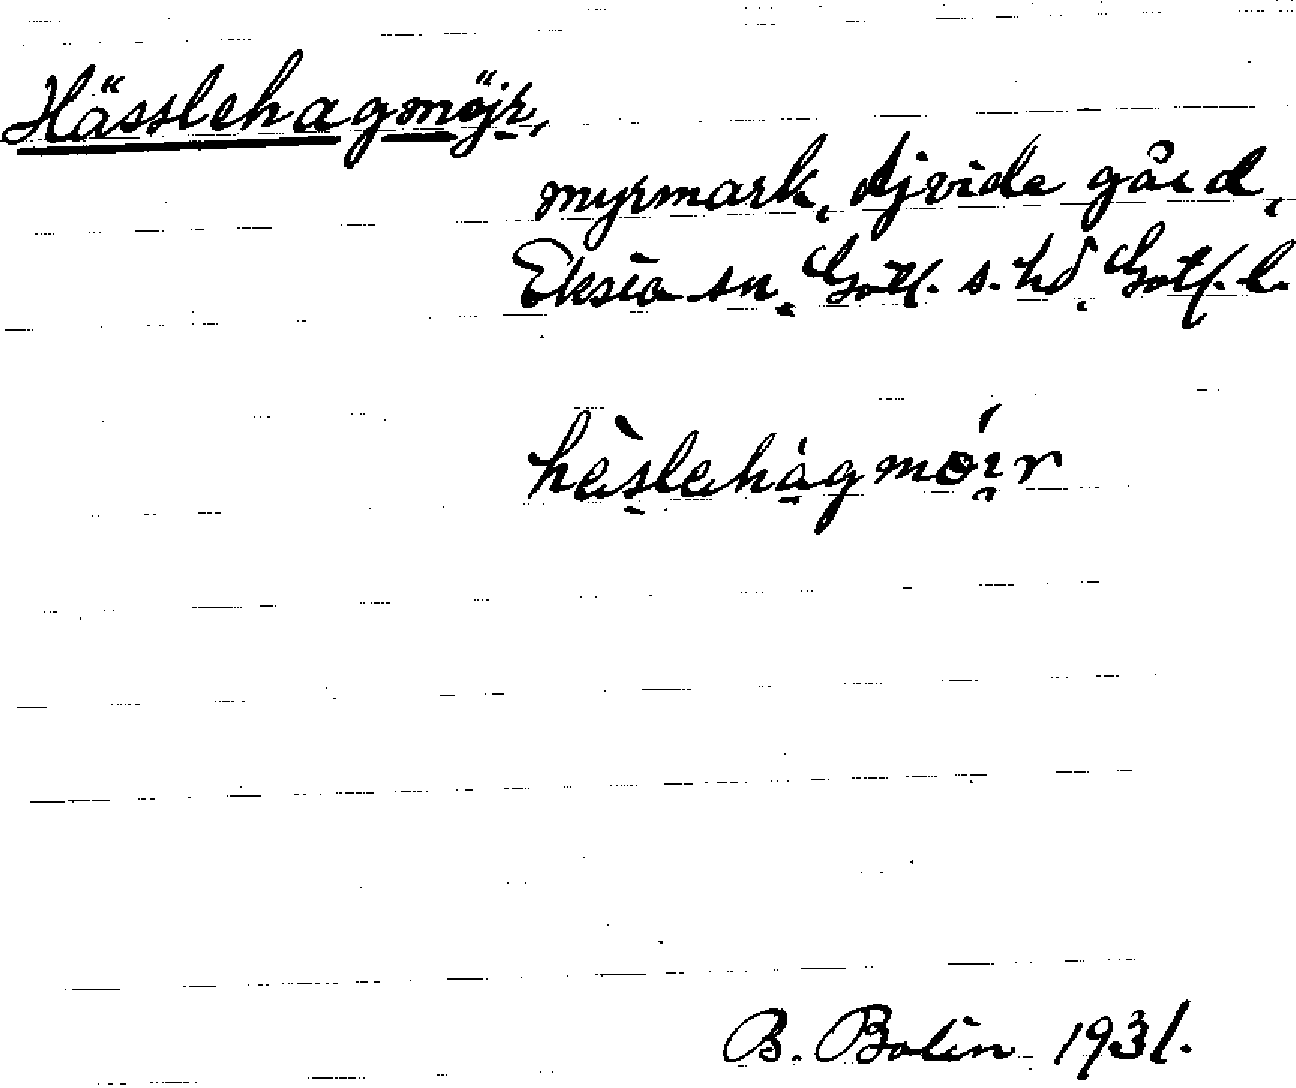 Hässlehagmöjr,
myrmark, Djvide gård,
Eksta sn, Gotl. s. hd, Gotl. l.
hèslehágmǿir
B. Bolin 1931.